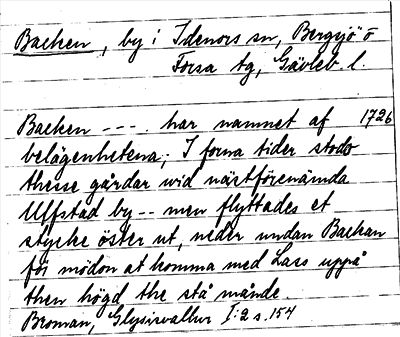 Backen, by i Idenors sn, Bergsjö o
Forsa tg, Gävleb. l.
Backen --- har namnet af 1726
belägenhetena; I forna tider stodo
thesse gårdar wid näetförenämda
Ulfstad by -- men flyttades et
stycke öster ut, neder undan Backan
för mödon at komma med Lass uppå
then högd the stå månde.
Broman, Glysisvallur I:2 s. 154